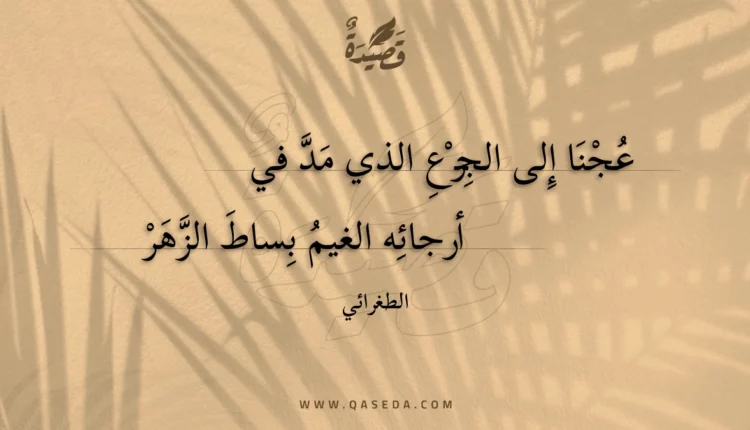 قَصِيْدَةٌ
عُجْنَا إِلى الجِزْعِ الذي مَدَّ في
أرجائِه الغيمُ بِساطَ الزَّهَرْ
الطغرائي
WWW.QASEDA.COM